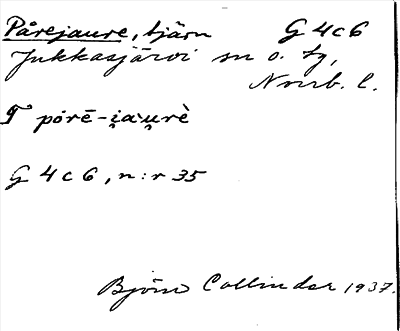 Pårejaure, tjärn G 4 c 6
Jukkasjärvi sn o. tg,
Norrb. l.
T pórē-i̯au̯rè
G 4 c 6, n:r 35
Björn Collinder 1937.